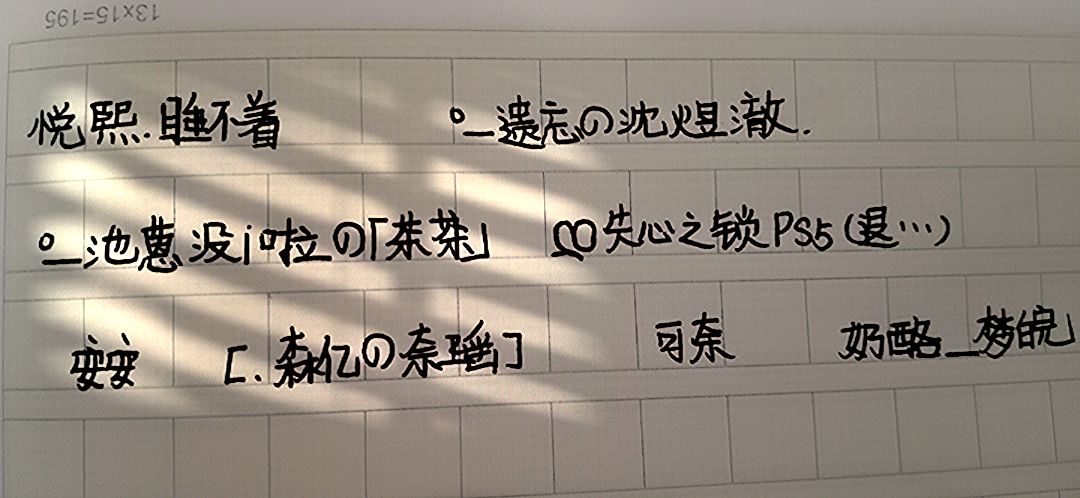 13x15=195
悦熙.睡不着 °_遗忘の沈煜澈.
°_池蒽没j啦の「茶茶」 ஐ失心之锁PS5(退…)
安安 [.森亿の奈瑶] 可奈 奶酪_梦皖